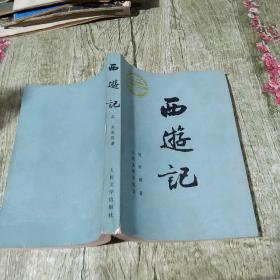 西遊記
上 吳承恩著
人民文学出版社
西遊記
吳承恩著
人民文学出版社